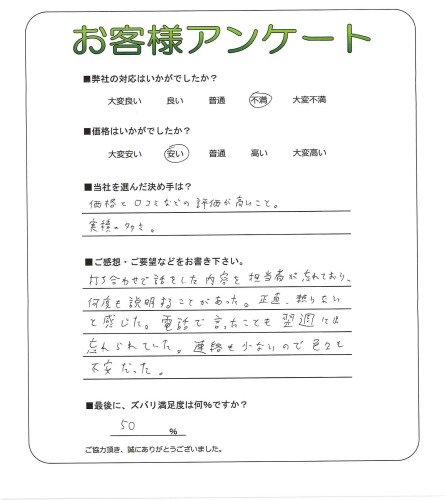 お客様アンケート
■弊社の対応はいかがでしたか?
大変良い 良い 普通 不満 大変不満
■価格はいかがでしたか?
大変安い 安い 普通 高い 大変高い
■当社を選んだ決め手は?
価格と口コミなどの評価が高いこと。
実積の多さ。
■ご感想・ご要望などをお書き下さい。
打ち合わせで話をした内容を担当者が忘れており、
何度も説明することがあった。正直、頼りない
と感じた。電話で言ったことも翌週には
忘れられていた。連絡も少ないので色々と
不安だった。
■最後に、ズバリ満足度は何%ですか?
50 %
ご協力頂き、誠にありがとうございました。